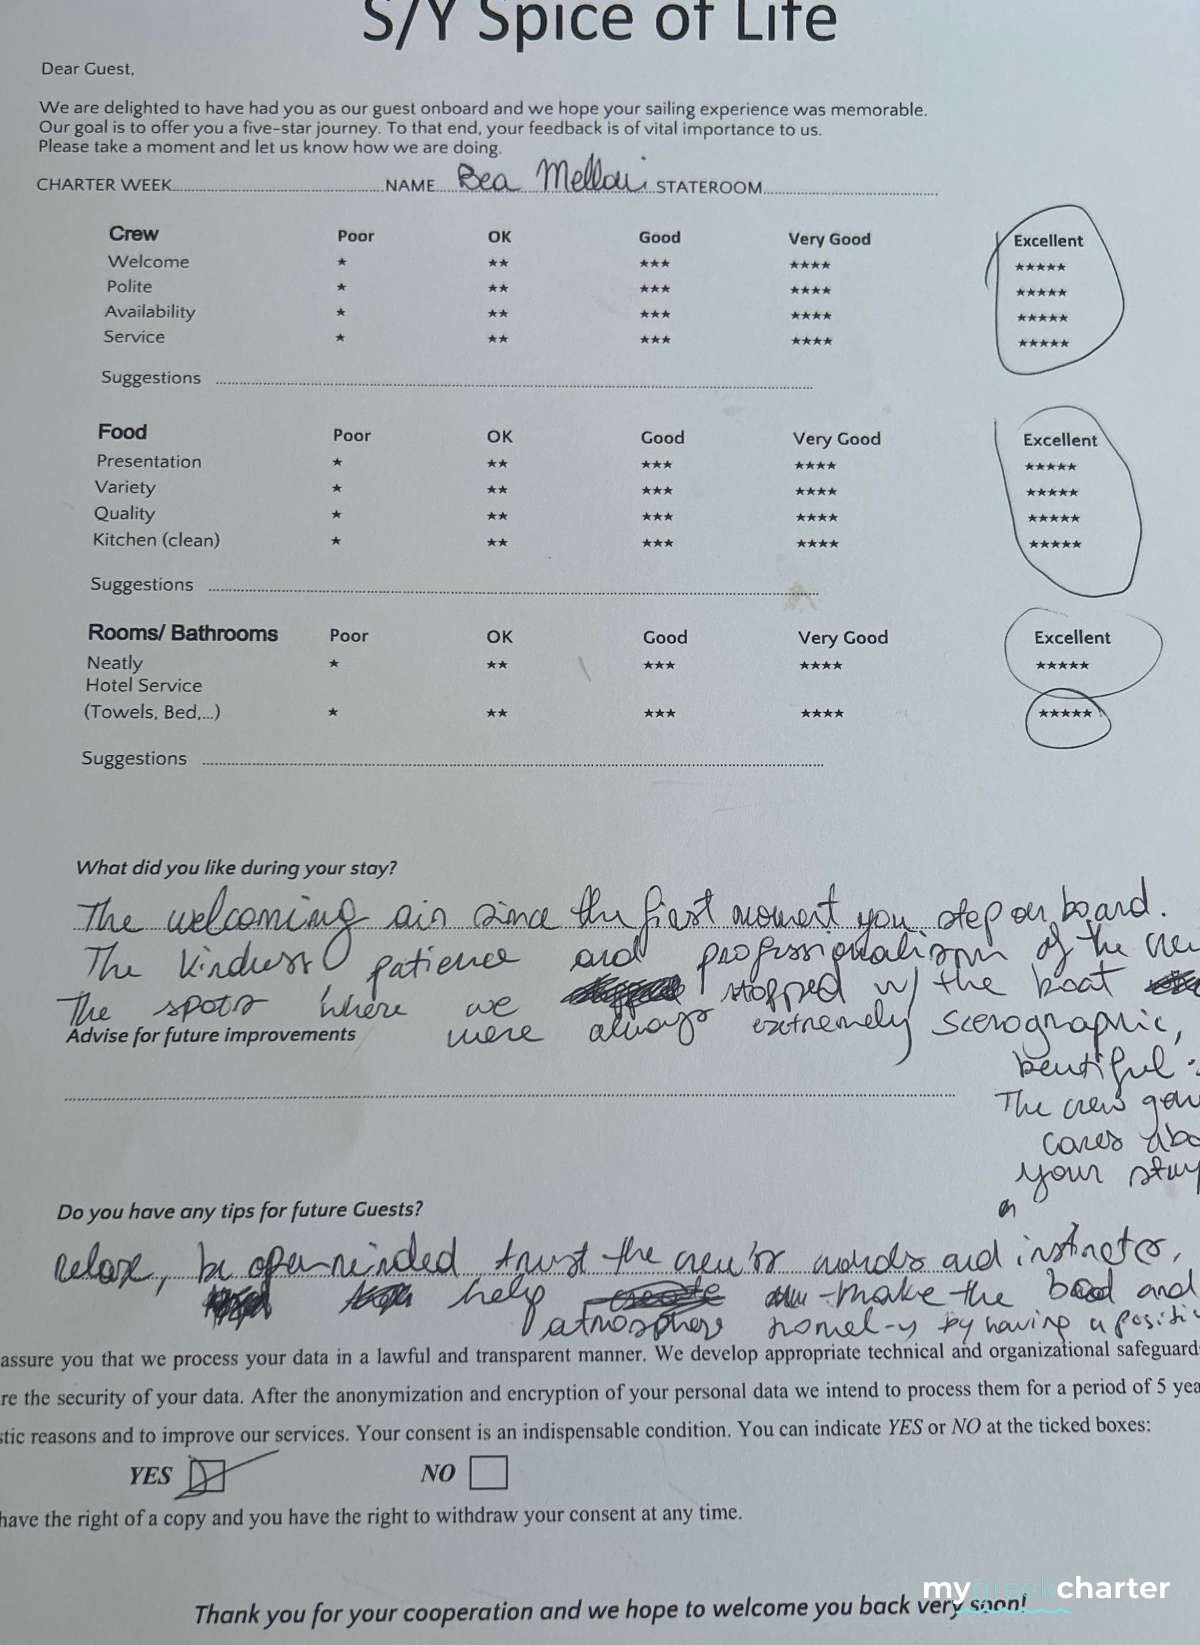 S/Y Spice of Life
Dear Guest,
We are delighted to have had you as our guest onboard and we hope your sailing experience was memorable.
Our goal is to offer you a five-star journey. To that end, your feedback is of vital importance to us.
Please take a moment and let us know how we are doing.
CHARTER WEEK NAME Bea STATEROOM
Crew Poor OK Good Very Good Excellent
Welcome ★ ★★ ★★★ ★★★★ ★★★★★
Polite ★ ★★ ★★★ ★★★★ ★★★★★
Availability ★ ★★ ★★★ ★★★★ ★★★★★
Service ★ ★★ ★★★ ★★★★ ★★★★★
Suggestions
Food Poor OK Good Very Good Excellent
Presentation ★ ★★ ★★★ ★★★★ ★★★★★
Variety ★ ★★ ★★★ ★★★★ ★★★★★
Quality ★ ★★ ★★★ ★★★★ ★★★★★
Kitchen (clean) ★ ★★ ★★★ ★★★★ ★★★★★
Suggestions
Rooms/ Bathrooms Poor OK Good Very Good Excellent
Neatly ★ ★★ ★★★ ★★★★ ★★★★★
Hotel Service
(Towels, Bed,...) ★ ★★ ★★★ ★★★★ ★★★★★
Suggestions
What did you like during your stay?
The welcoming air since the first moment you step on board.
The kindness patience and professionalism of the crew
The spots where we stopped w/ the boat
were always extremely scenographic,
Advise for future improvements
beautiful.
The crew
cares
your stay
Do you have any tips for future Guests?
relax, be open-minded trust the crew's words and
help make the and
atmosphere homel-y by having a
assure you that we process your data in a lawful and transparent manner. We develop appropriate technical and organizational safeguard
re the security of your data. After the anonymization and encryption of your personal data we intend to process them for a period of 5 yea
stic reasons and to improve our services. Your consent is an indispensable condition. You can indicate YES or NO at the ticked boxes:
YES NO
have the right of a copy and you have the right to withdraw your consent at any time.
mygreekcharter
Thank you for your cooperation and we hope to welcome you back very soon!